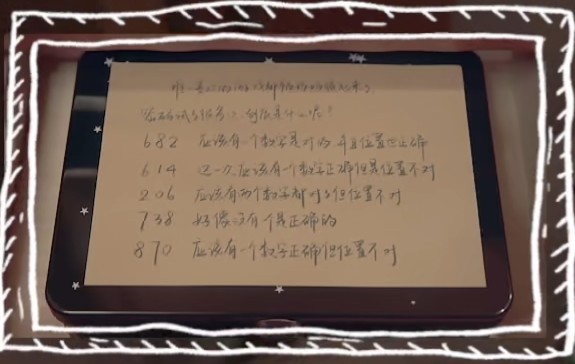 密码试了很多次，到底是什么呢？
682 应该有一个数字是对的 并且位置也正确
614 这一次应该有一个数字正确但是位置不对
206 应该有两个数字都对了但位置不对
738 好像没有一个是正确的
870 应该有一个数字正确但位置不对